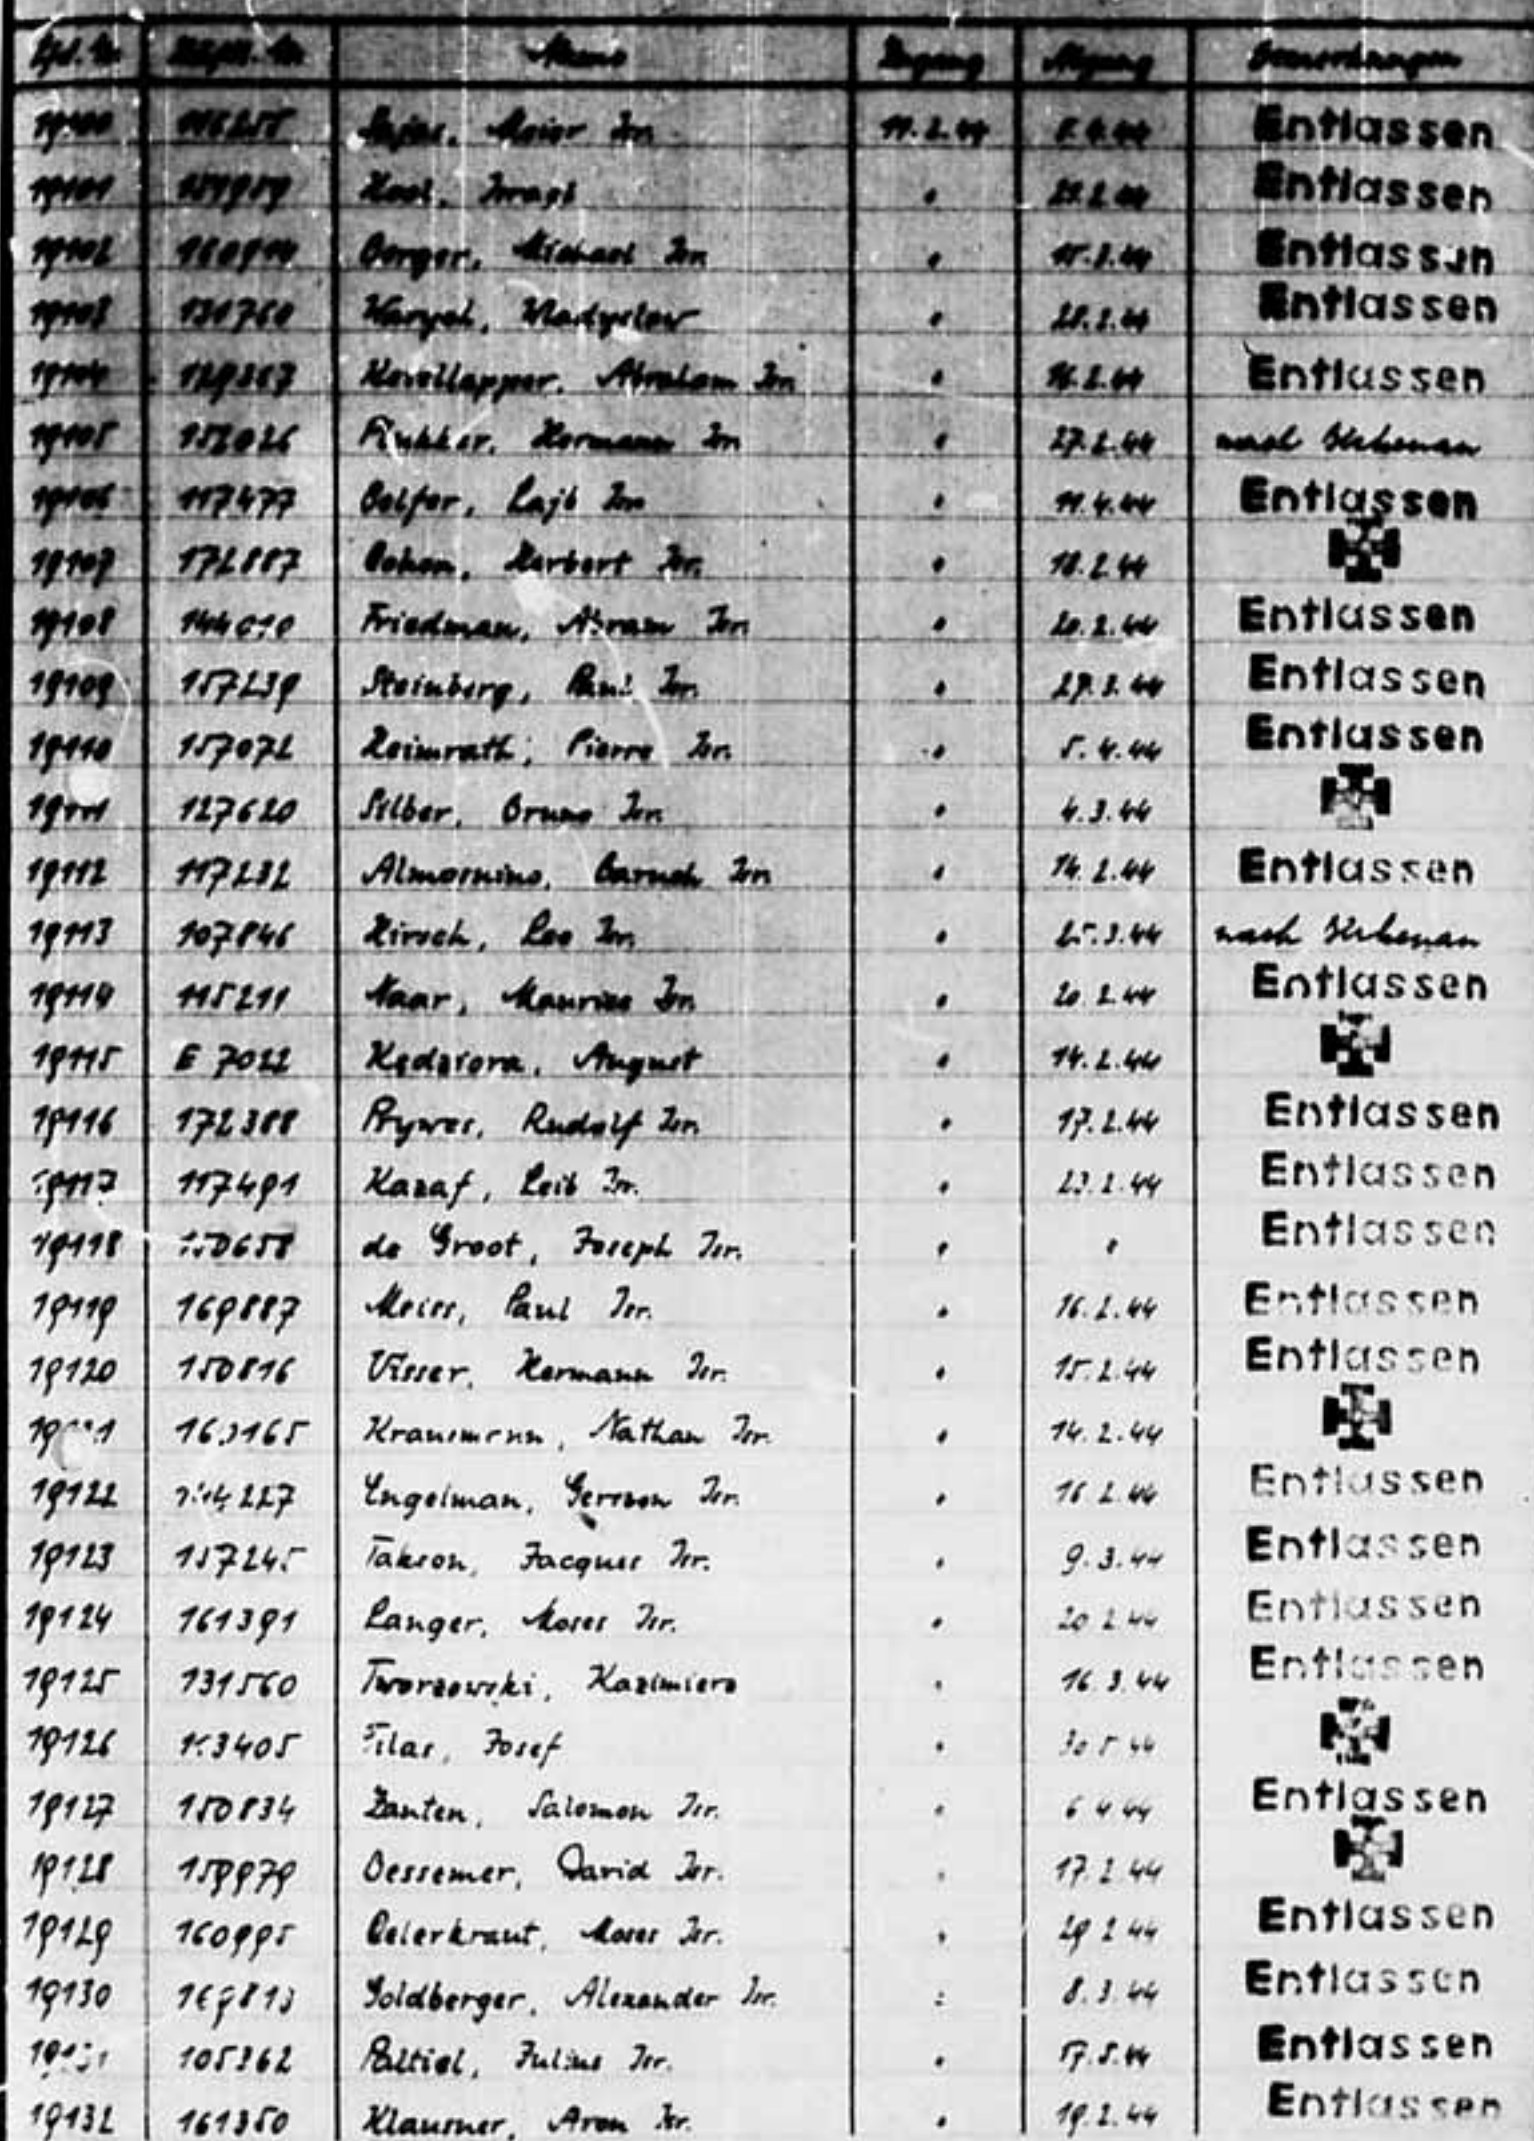 Lfd. Nr. Häftl. Nr. Name Zugang Abgang Bemerkungen
19100 Meier Isr. 11.2.44 5.4.44 Entlassen
19101 Israel " Entlassen
19102 Berger, Michael Isr. " Entlassen
19103 131760 Waryoh, Wladyslaw " 28.2.44 Entlassen
19104 Abraham Isr. " 16.2.44 Entlassen
19105 152026 Hermann Isr. " 27.2.44 nach Birkenau
19106 117477 Lajb Isr. " 11.4.44 Entlassen
19107 172887 Cohen, Herbert Isr. " 18.2.44
19108 144010 Friedman, Abram Isr. " 20.2.44 Entlassen
19109 157239 Steinberg, Paul Isr. " Entlassen
19110 157072 Heimrath, Pierre Isr. " 5.4.44 Entlassen
19111 127620 Silber, Bruno Isr. " 4.3.44
19112 117232 Almosnino, Baruch Isr. " 14.2.44 Entlassen
19113 107846 Hirsch, Leo Isr. " 25.3.44 nach Birkenau
19114 115211 Naar, Maurice Isr. " 20.2.44 Entlassen
19115 E 7022 Kędziora, August " 14.2.44
19116 172388 Prywes, Rudolf Isr. " 17.2.44 Entlassen
19117 117491 Kazaf, Leib Isr. " 23.2.44 Entlassen
19118 150658 de Groot, Joseph Isr. " " Entlassen
19119 169887 Meiss, Paul Isr. " 16.2.44 Entlassen
19120 150816 Visser, Hermann Isr. " 15.2.44 Entlassen
Nathan Isr. " 14.2.44
19122 Engelman, Gerszon Isr. " 16.2.44 Entlassen
19123 157245 Jacques Isr. " 9.3.44 Entlassen
19124 161391 Langer, Moses Isr. " 20.2.44 Entlassen
19125 131560 Tworzowski, Kazimierz " 16.3.44 Entlassen
19126 Filas, Josef " 30.5.44
19127 150834 Zanten, Salomon Isr. " 6.4.44 Entlassen
19128 159979 Dessemer, David Isr. " 17.2.44
19129 160995 Moses Isr. " 29.2.44 Entlassen
19130 169813 Goldberger, Alexander Isr. " 8.3.44 Entlassen
105362 Paltiel, Julius Isr. " 17.5.44 Entlassen
19132 161350 Klausner, Aron Isr. " 19.2.44 Entlassen